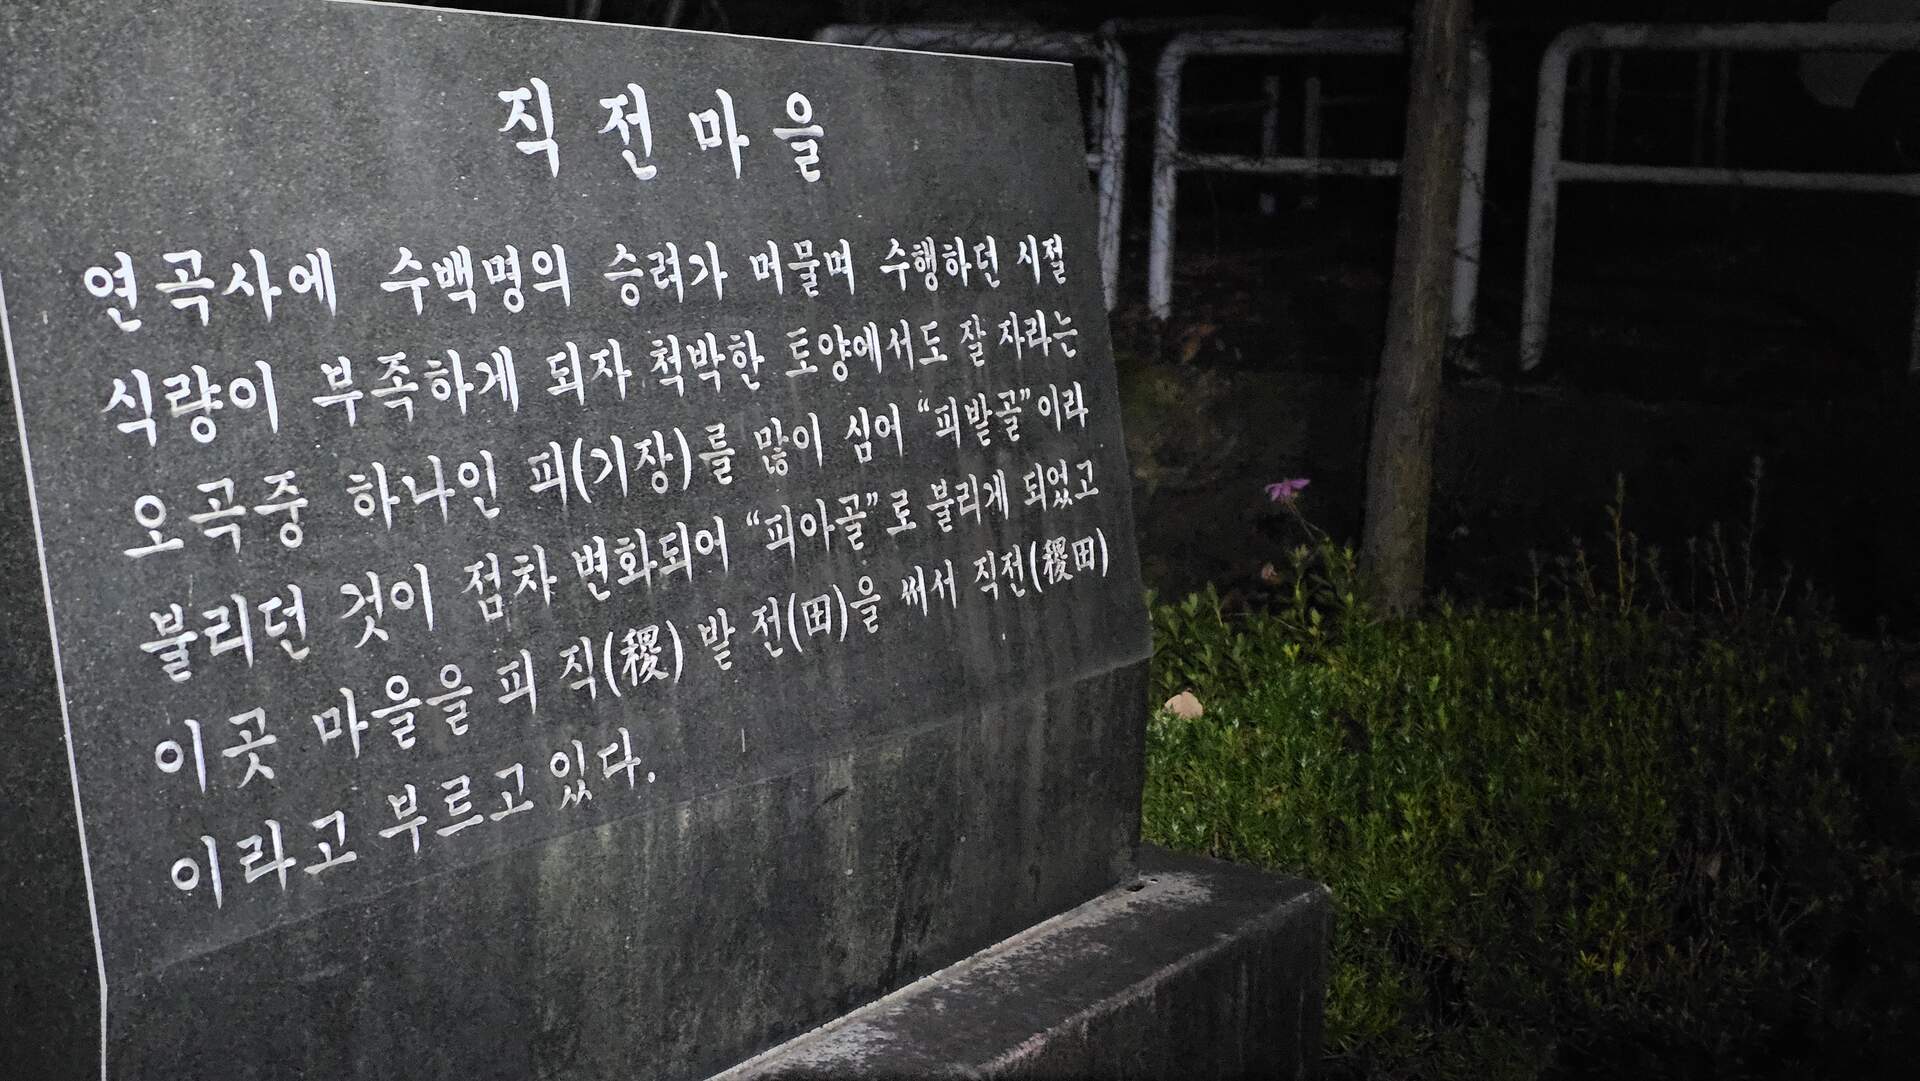 직전마을
연곡사에 수백명의 승려가 머물며 수행하던 시절
식량이 부족하게 되자 척박한 토양에서도 잘 자라는
오곡중 하나인 피(기장)를 많이 심어 “피밭골”이라
불리던 것이 점차 변화되어 “피아골”로 불리게 되었고
이곳 마을을 피 직(稷) 밭 전(田)을 써서 직전(稷田)
이라고 부르고 있다.